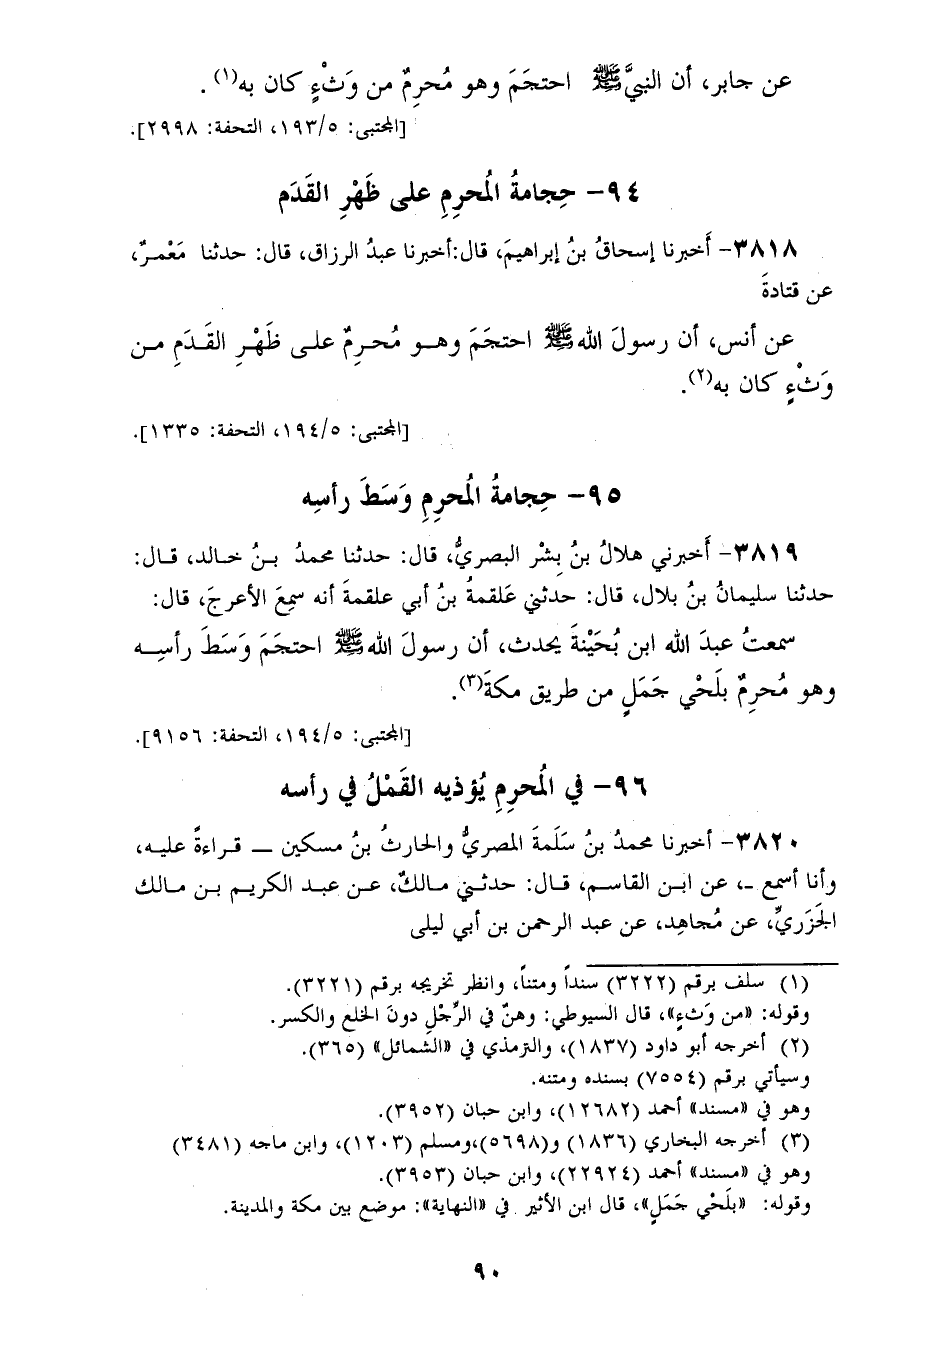 عن جابر، أن النبيَّ ﷺ احتجَمَ وهو مُحرِمٌ من وَثْءٍ كان به(١).
[المجتبى: ١٩٣/٥، التحفة: ٢٩٩٨].
٩٤- حِجامةُ المُحرِمِ على ظَهْرِ القَدَم
٣٨١٨- أَخبرنا إسحاقُ بنُ إبراهيمَ، قال:أخبرنا عبدُ الرزاق، قال: حدثنا مَعْمرٌ،
عن قتادةَ
عن أنس، أن رسولَ الله ﷺ احتجَمَ وهـو مُحـرِمٌ علـى ظَهْـرِ القَـدَمِ مـن
وَثْءٍ كان به(٢).
[المجتبى: ١٩٤/٥، التحفة: ١٣٣٥].
٩٥- حِجامةُ المُحرِمِ وَسَطَ رأسِه
٣٨١٩- أَخبرني هلالُ بنُ بِشْرٍ البصريُّ، قال: حدثنا محمدُ بـنُ خـالد، قـال:
حدثنا سليمانُ بنُ بلال، قال: حدثني عَلقمةُ بنُ أبي علقمةَ أنه سمِعَ الأعرجَ، قال:
سمعتُ عبدَ الله ابن بُحَيْنةَ يحدث، أن رسولَ الله ﷺ احتجَمَ وَسَطَ رأسِـه
وهو مُحرِمٌ بلَحْيِ جَمَلٍ من طريق مكةَ(٣).
[المجتبى: ١٩٤/٥، التحفة: ٩١٥٦].
٩٦- في المُحرِمِ يُؤذيه القَمْلُ في رأسه
٣٨٢٠- أخبرنا محمدُ بنُ سَلَمةَ المصريُّ والحارثُ بنُ مسكين ــ قـراءةً عليـه،
وأنا أسمع ــ، عن ابـن القاسـم، قـال: حدثـني مـالكٌ، عـن عبـد الكريـم بـن مـالك
الجَزَريِّ، عن مُجاهِد، عن عبد الرحمن بن أبي ليلى
(١) سلف برقم (٣٢٢٢) سنداً ومتناً، وانظر تخريجه برقم (٣٢٢١).
وقوله: «من وَثءٍ»، قال السيوطي: وهنٌ في الرِّجْلِ دونَ الخلع والكسر.
(٢) أخرجه أبو داود (١٨٣٧)، والترمذي في «الشمائل» (٣٦٥).
وسيأتي برقم (٧٥٥٤) بسنده ومتنه.
وهو في «مسند» أحمد (١٢٦٨٢)، وابن حبان (٣٩٥٢).
(٣) أخرجه البخاري (١٨٣٦) و(٥٦٩٨)،ومسلم (١٢٠٣)، وابن ماجه (٣٤٨١)
وهو في «مسند» أحمد (٢٢٩٢٤)، وابن حبان (٣٩٥٣).
وقوله: «بلَحْيِ جَمَلٍ»، قال ابن الأثير في «النهاية»: موضع بين مكة والمدينة.
٩٠